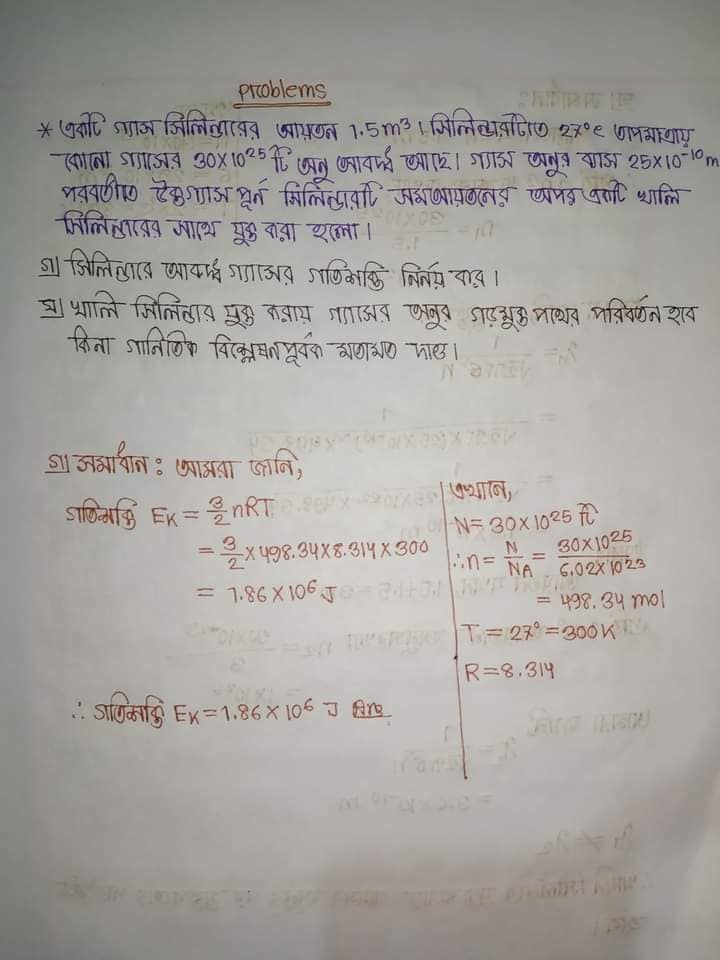 Problems
* একটি গ্যাস সিলিন্ডারের আয়তন 1.5m³। সিলিন্ডারটিতে 27°c তাপমাত্রায়
কোনো গ্যাসের 30×10²⁵ টি অনু আবদ্ধ আছে। গ্যাস অনুর ব্যাস 25×10⁻¹⁰m
পরবর্তীতে উক্তগ্যাস পূর্ন সিলিন্ডারটি সমআয়তনের অপর একটি খালি
সিলিন্ডারের সাথে যুক্ত করা হলো।
গ) সিলিন্ডারে আবদ্ধ গ্যাসের গতিশক্তি নির্নয় কর।
ঘ) খালি সিলিন্ডার যুক্ত করায় গ্যাসের অনুর গড়মুক্ত পথের পরিবর্তন হবে
কিনা গানিতিক বিশ্লেষনপূর্বক মতামত দাও।
গ) সমাধান : আমরা জানি,
গতিশক্তি Eₖ = 3/2 nRT
= 3/2 × 498.34×8.314×300
= 1.86 × 10⁶ J
∴ গতিশক্তি Eₖ = 1.86 × 10⁶ J Ans
এখানে,
N = 30×10²⁵ টি
∴n = N/NA = 30×10²⁵/6.02×10²³
= 498.34 mol
T = 27° = 300K
R = 8.314